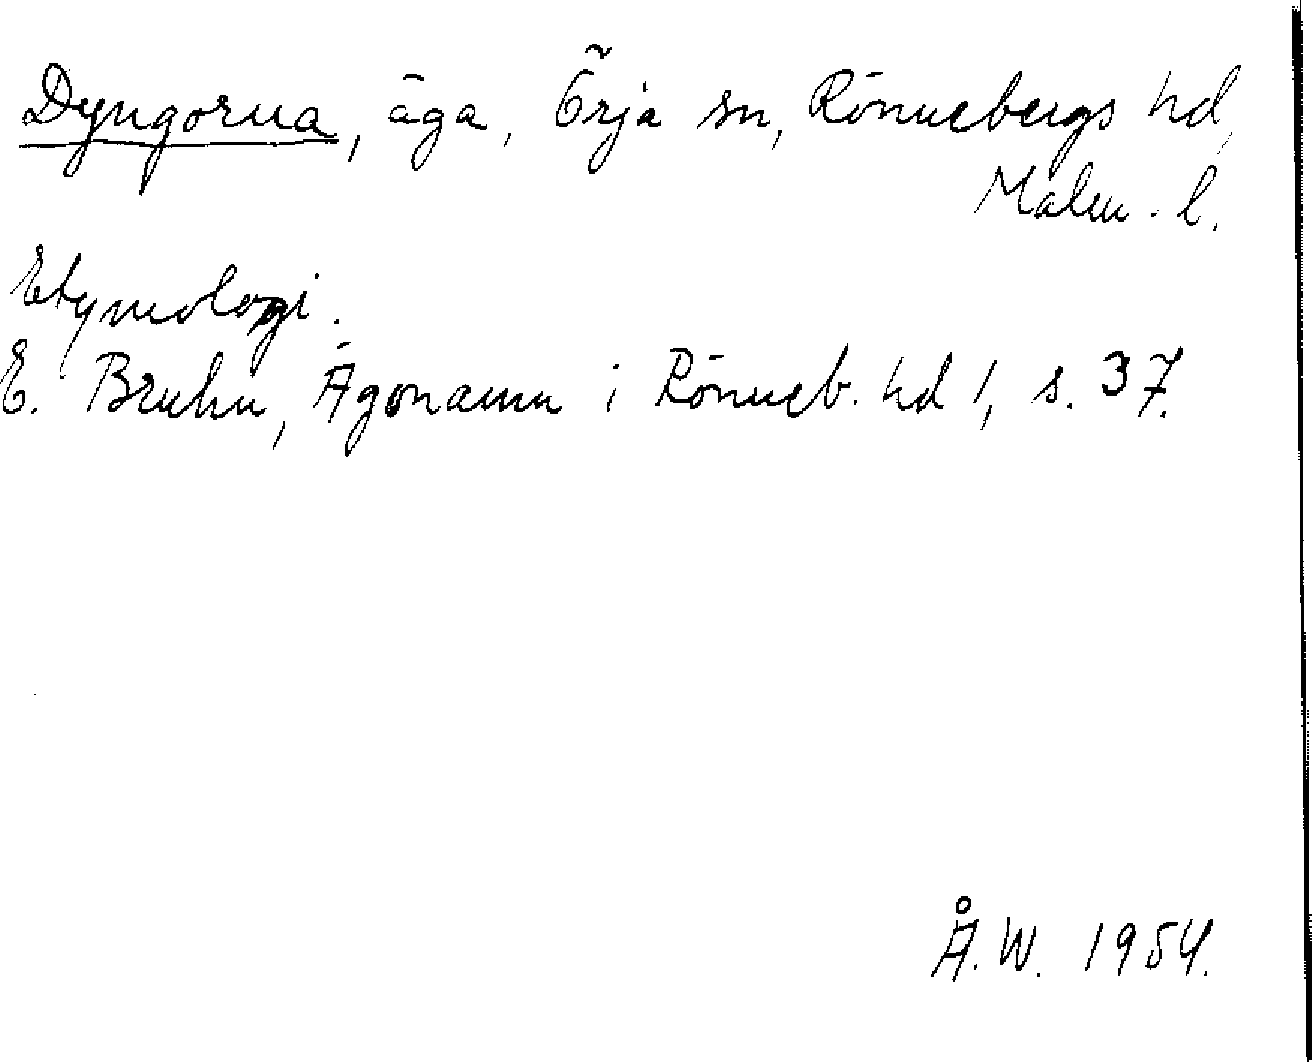 Dyngorna, äga, Örja sn, Rönnebergs hd,
Malm. l.
Etymologi.
E. Bruhn, Ägonamn i Rönneb. hd 1, s. 37.
Å.W. 1954.